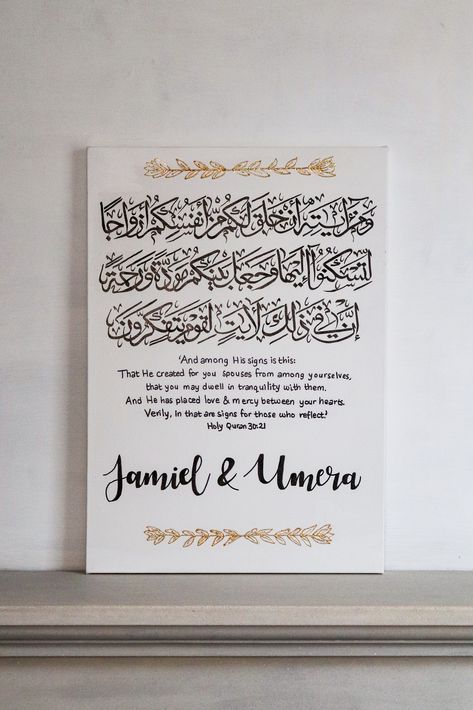 وَمِنْ آيَٰتِهِۦٓ أَنْ خَلَقَ لَكُم مِّنْ أَنفُسِكُمْ أَزْوَٰجًا
لِّتَسْكُنُوٓا۟ إِلَيْهَا وَجَعَلَ بَيْنَكُم مَّوَدَّةً وَرَحْمَةً
إِنَّ فِى ذَٰلِكَ لَآيَٰتٍ لِّقَوْمٍ يَتَفَكَّرُونَ
'And among His signs is this:
That He created for you spouses from among yourselves,
that you may dwell in tranquility with them.
And He has placed love & mercy between your hearts.
Verily, In that are signs for those who reflect.'
Holy Quran 30:21
Jamiel & Umera